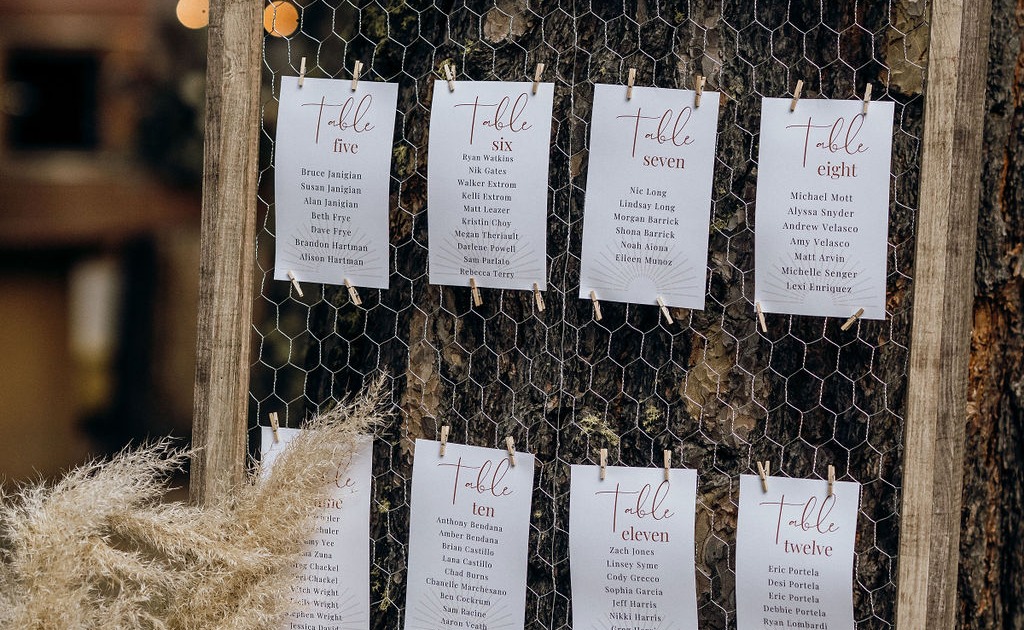 Table
five
Bruce Janigian
Susan Janigian
Alan Janigian
Beth Frye
Dave Frye
Brandon Hartman
Alison Hartman
Table
six
Ryan Watkins
Nik Gates
Walker Extrom
Kelli Extrom
Matt Leazer
Kristin Choy
Megan Theriault
Darlene Powell
Sam Parlato
Rebecca Terry
Table
seven
Nic Long
Lindsay Long
Morgan Barrick
Shona Barrick
Noah Aiona
Eileen Munoz
Table
eight
Michael Mott
Alyssa Snyder
Andrew Velasco
Amy Velasco
Matt Arvin
Michelle Senger
Lexi Enriquez
Zuna
Chackel
Wright
Wright
Wright
Jessica David
Table
ten
Anthony Bendana
Amber Bendana
Brian Castillo
Lana Castillo
Chad Burns
Chanelle Marchesano
Ben Cockrum
Sam Racine
Aaron Veath
Table
eleven
Zach Jones
Linsey Syme
Cody Grecco
Sophia Garcia
Jeff Harris
Nikki Harris
Table
twelve
Eric Portela
Desi Portela
Eric Portela
Debbie Portela
Ryan Lombardi